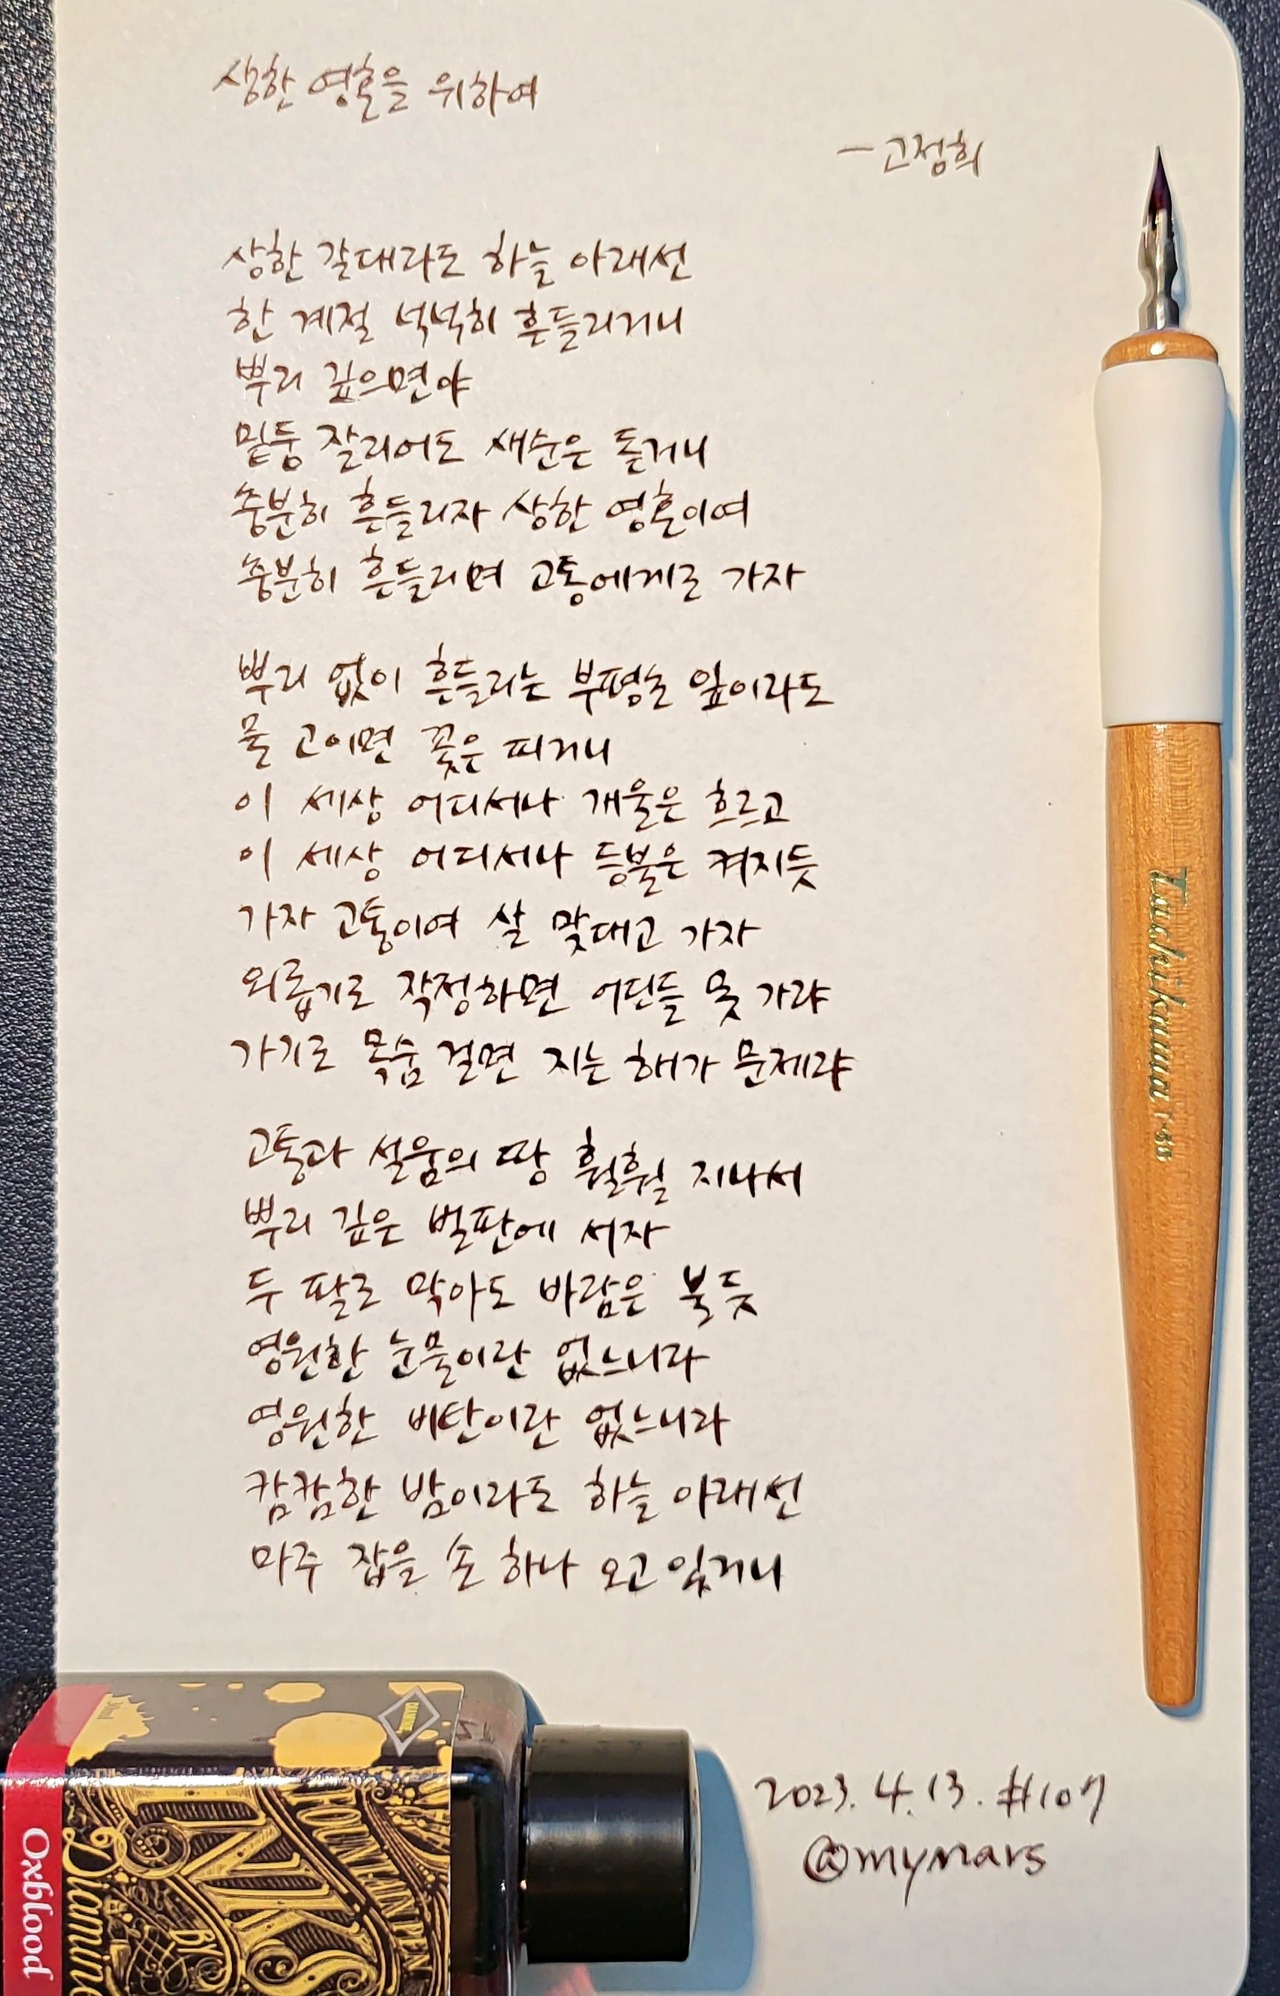 상한 영혼을 위하여
- 고정희
상한 갈대라도 하늘 아래선
한 계절 넉넉히 흔들리거니
뿌리 깊으면야
밑둥 잘리어도 새순은 돋거니
충분히 흔들리자 상한 영혼이여
충분히 흔들리며 고통에게로 가자
뿌리 없이 흔들리는 부평초 잎이라도
물 고이면 꽃은 피거니
이 세상 어디서나 개울은 흐르고
이 세상 어디서나 등불은 켜지듯
가자 고통이여 살 맞대고 가자
외롭기로 작정하면 어딘들 못 가랴
가기로 목숨 걸면 지는 해가 문제랴
고통과 설움의 땅 훨훨 지나서
뿌리 깊은 벌판에 서자
두 팔로 막아도 바람은 불듯
영원한 눈물이란 없느니라
영원한 비탄이란 없느니라
캄캄한 밤이라도 하늘 아래선
마주 잡을 손 하나 오고 있거니
Tachikawa T-40
2023. 4. 13. #107
@mymars
30ml
FOUNTAIN PEN
INKS
BY
Diamine
Oxblood